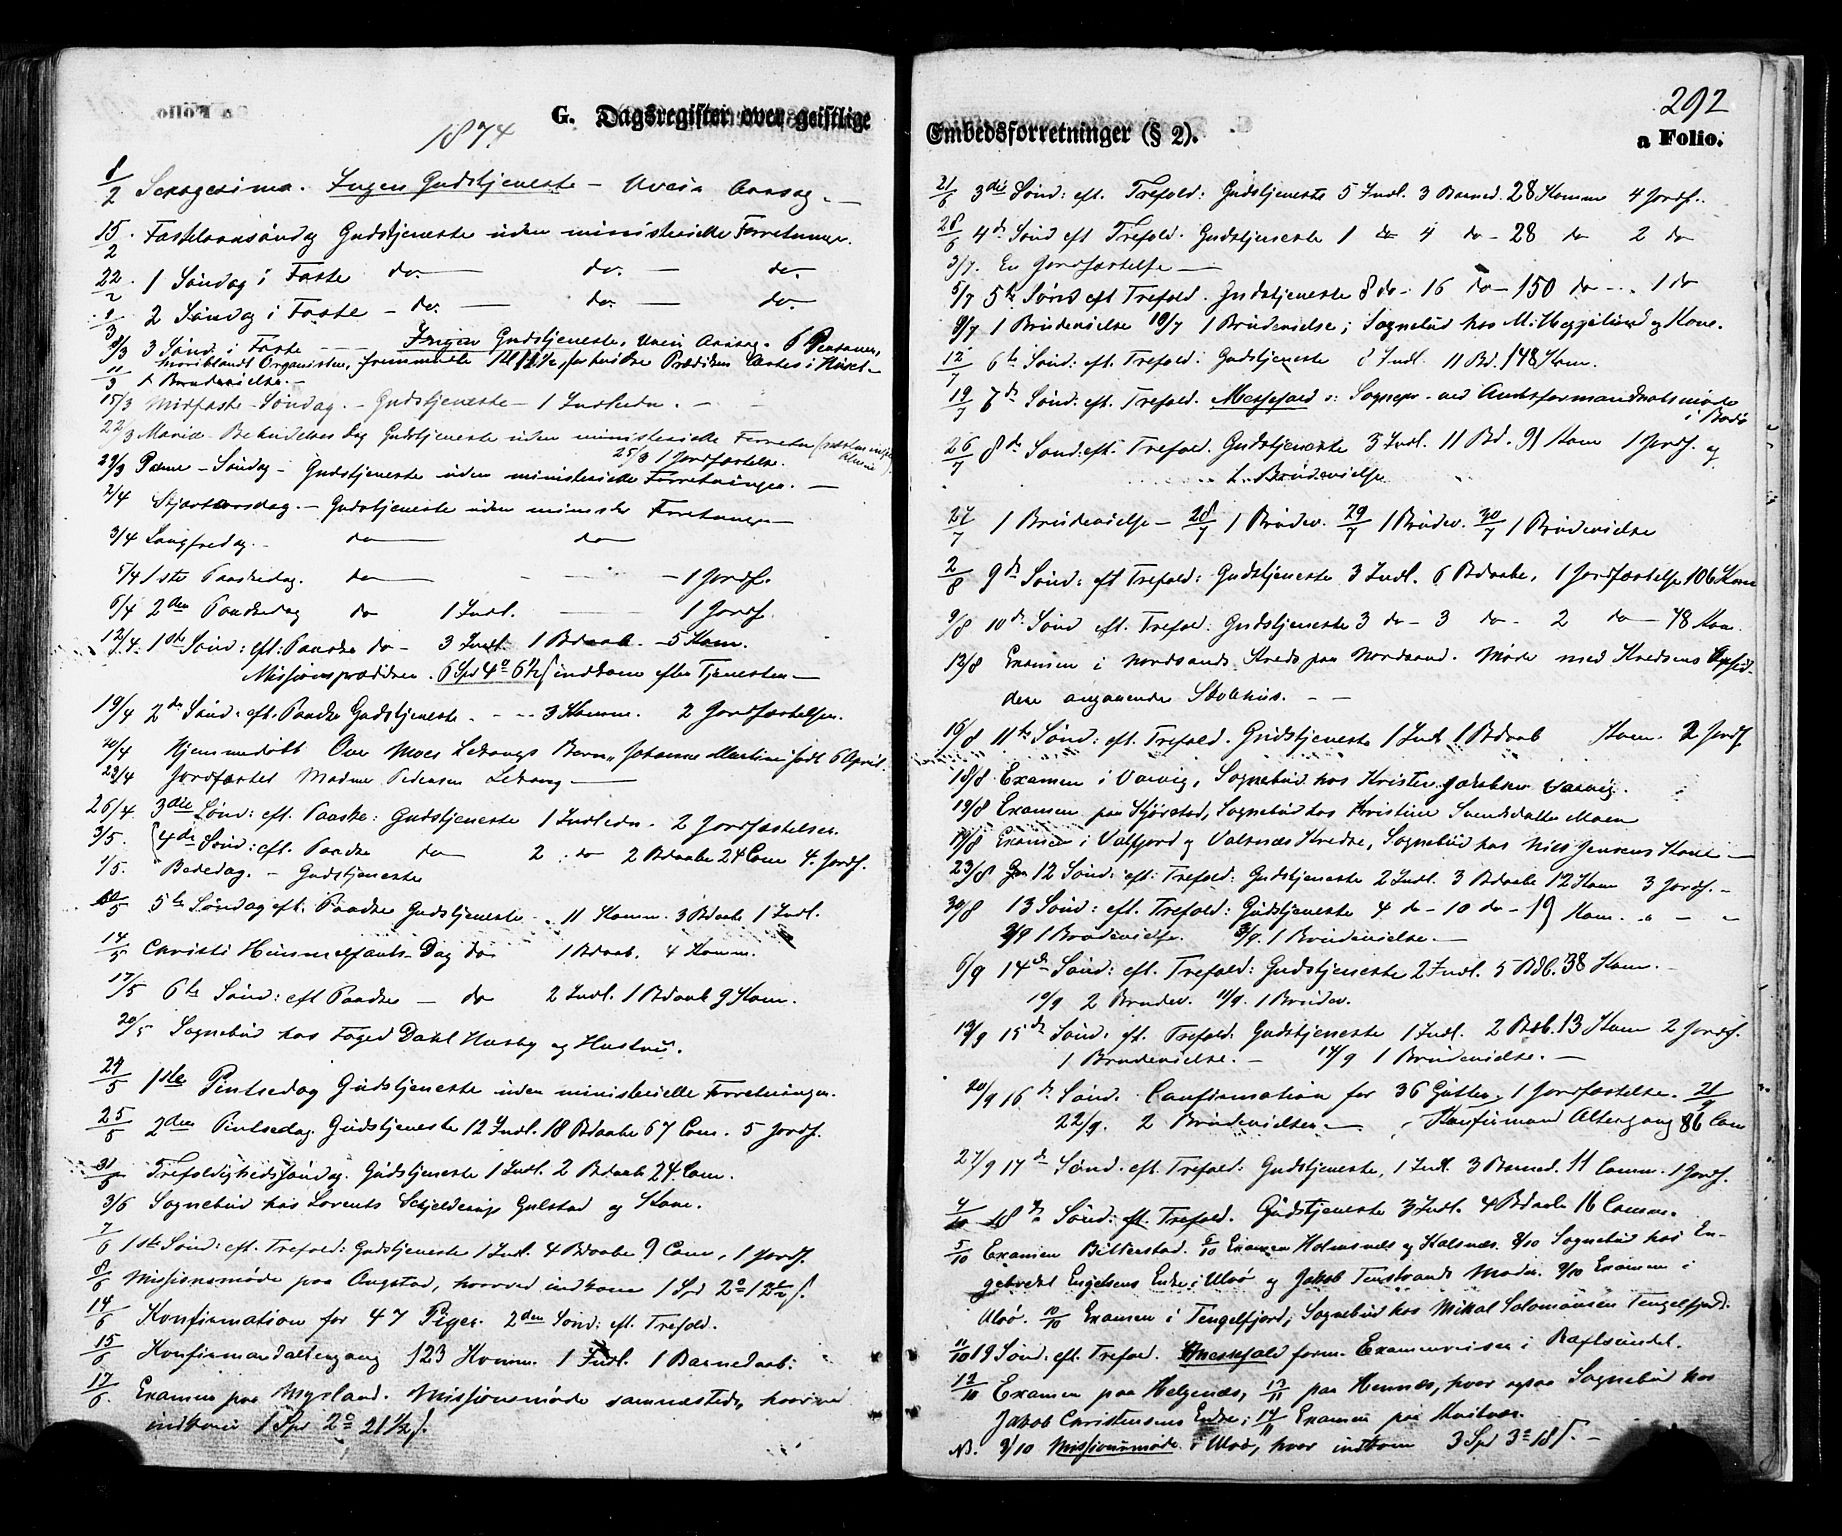 G. Dagsregister over geistlige
1874
8/2 Sexagesima. Ingen Gudstjeneste – Uveir Aarsag. –
15/2 Fastelavnsöndag Gudstjeneste uden ministerielle Forretninger.
22/2 1 Söndag i Faste do. – do. – do.
1/3 2 Söndag i Faste – do. – do. – do.
8/3 3 Sönd. i Faste – Ingen Gudstjeneste, Uveir Aarsag. 6 Personer,
hvoriblandt Organisten, fremmødte
11/3 1 Brudevielse. –
15/3 Midfaste Söndag. – Gudstjeneste – 1 Indledn. –
22/3 Mariæ Bebudelses Dag Gudstjeneste uden ministerielle Forretn
25/3 1 Jordfæstelse.
29/3 Palme-Söndag – Gudstjeneste uden ministerielle Forretninger. –
2/4 Skjærtorsdag. – Gudstjeneste uden minister Forretninger –
3/4 Langfredag. – do – do
5/4 1ste Paaskedag. do – – – 1 Jordf.
6/4 2den Paaskedag do 1 Indl. – 1 Jordf.
12/4. 1ste Sönd: eft: Paaske do – 3 Indl. 1 Bdaab. – 5 Kom.
Missionsprædiken. 6 Spd 4 o 6½ ʃ indkom efter Tjenesten –
19/4 2den Sönd: eft. Paaske Gudstjeneste. – – 3 Komm. 2 Jordfæstelser.
20/4 Hjemmedöbt Ove Moes Ledangs Barn, Johanna Martine född 6 April.
23/4 Jordfæstet Madme Pedersen Ledang –
26/4 3die Sönd: eft. Paaske: Gudstjeneste 1 Indledn. 2 Jordfæstelser.
3/5. 4de Sönd: eft. Paaske do 2 do 2 Bdaabe 24 Com 4. Jordf.
1/5. Bededag. – Gudstjeneste
10/5 5te Söndag eft. Paaske Gudstjeneste – 11 Komm. 3 Bdaab 1 Indl.
14/5 Christi Himmelfarts-Dag do 1 Bdaab. 4 Komm.
17/5 6te Sönd: eft Paaske – do 2 Indl. 1 Bdaab 9 Kom.
20/5 Sognebud hos Foged Dahl Husby og Hustru.
24/5 1ste Pintsedag Gudstjeneste uden ministerielle Forretninger.
25/5 2den Pintsedag. Gudstjeneste 12 Indl. 18 Bdaabe 67 Com. 5 Jordf.
31/5 Trefoldighedssöndag. Gudstjeneste 1 Indl. 2 Bdaab 24 Com.
3/6 Sognebud hos Lorents Schjelderup Gulstad og Kone.
7/6 1ste Sönd: eft: Trefold: Gudstjeneste 1 Indl. 4 Bdaabe 9 Com, 1 Jordf.
8/6 Missionsmöde paa Angstad, hvorved indkom 1 Spd 2 o 12 ʃ.
14/6 Konfirmation for 47 Piger. 2den Sönd: eft. Trefold.
15/6 Konfirmandaltergang 123 Komm. 1 Indl. 1 Barnedaab:
17/6. Examen paa Myrland. Missionsmöde sammesteds, hvorved
indkom 1 Spd 2 o 21½ ʃ.
292
Embedsforretninger (§ 2). a Folio.
21/6 3die Sönd: eft. Trefold: Gudstjeneste 5 Indl. 3 Barned. 28 Komm 4 Jordf.
28/6 4de Sönd eft Trefold. Gudstjeneste 1 do 4 do – 28 do 2 do
3/7. En Jordfæstelse –
5/7 5te Sönd eft Trefold. Gudstjeneste 8 do – 16 do – 150 do – 1 do
9/7 1 Brudevielse 10/7 1 Brudevielse; Sognebud hos M. Heggelund og Kone.
12/7 6te Sönd: eft. Trefold: Gudstjeneste Indl. 11 Bd. 148 Kom.
19/7 7de Sönd: eft. Trefold. Messefald o: Sognepr. ved Amtsformandskabsmöde
i Bodö
26/7 8de Sönd: eft. Trefold. Gudstjeneste 3 Indl. 11 Bd. 91 Kom 1 Jordf. og
1. Brudevielse
27/7 1 Brudevielse – 28/7 1 Brudev. 29/7 1 Brudev. 30/7 1 Brudevielse
2/8 9de Sönd: eft Trefold: Gudstjeneste 3 Indl. 6 Bdaabe, 1 Jordfæstelse 106 Kom
9/8 10de Sönd eft. Trefold: Gudstjeneste 3 do – 3 do – 2 do – 78 Kom.
12/8 Examen i Nordsands Kreds paa Nordsand. Möde med Kredsens Opsid-
dere angaaende Skolehus. – –
16/8 11te Sönd: eft. Trefold. Gudstjeneste 1 Indl 1 Bdaab Kom. 2 Jordf
18/8 Examen i Vaavig, Sognebud hos Kristen Jakobsen Vaavig.
19/8 Examen paa Stjörstad, Sognebud hos Kristine Svendsdatter Moen
19/8 Examen i Valfjord og Valsnæs Kredse, Sognebud hos Niels Jensens Kone –
23/8 12 Sönd: eft: Trefold: Gudstjeneste 2 Indl. 3 Bdaabe 12 Kom 3 Jordf. –
30/8 13 Sönd: eft. Trefold: Gudstjeneste 4 do – 10 do – 19 Kom. " – "
2/9 1 Brudevielse. 3/9. 1 Brudevielse. –
6/9 14de Sönd: eft. Trefold: Gudstjeneste 2 Indl. 5 Bdb. 38 Kom. –
10/9 2 Brudev. 11/9. 1 Brudev.
13/9 15de Sönd: eft. Trefold: Gudstjeneste 1 Indl. 2 Bdb. 13 Kom 2 Jordf.
1 Brudevielse. – 14/9 1 Brudevielse. –
20/9 16de Sönd. Confirmation for 36 Gutter, 1 Jordfæstelse. 21/9
22/9. 2 Brudevielser – Konfirmand Altergang 86 Com
27/9 17de Sönd: eft. Trefold: Gudstjeneste, 1 Indl. 3 Barned. 11 Comm. 1 Jordf.
4/10 18de Sönd: eft. Trefold. Gudstjeneste 3 Indl. 4 Bdaabe 16 Comm.
5/10 Examen Bitterstad. 6/10 Examen Holmsnæs og Kalsnæs. 8/10 Sognebud hos En-
gebret Engelsens Enke i Ulvö og Jakob Tenstrands Moder. 9/10 Examen i
Ulvö. 10/10 Examen i Tengelfjord; Sognebud hos Mikal Salomonsen Tengelfjord.
11/10 19 Sönd: eft. Trefold. Messefald form. Examensreise i Raftsundet.
12/10 Examen paa Helgenæs, 13/11 paa Hennæs, hvor ogsaa Sognebud hos
Jakob Christensens Enke; 14/11 Examen paa Kaitnæs.
NB. 9/10 Missionsmöde i Ulvö, hvor indkom 3 Spd 3 o 18 ʃ. –